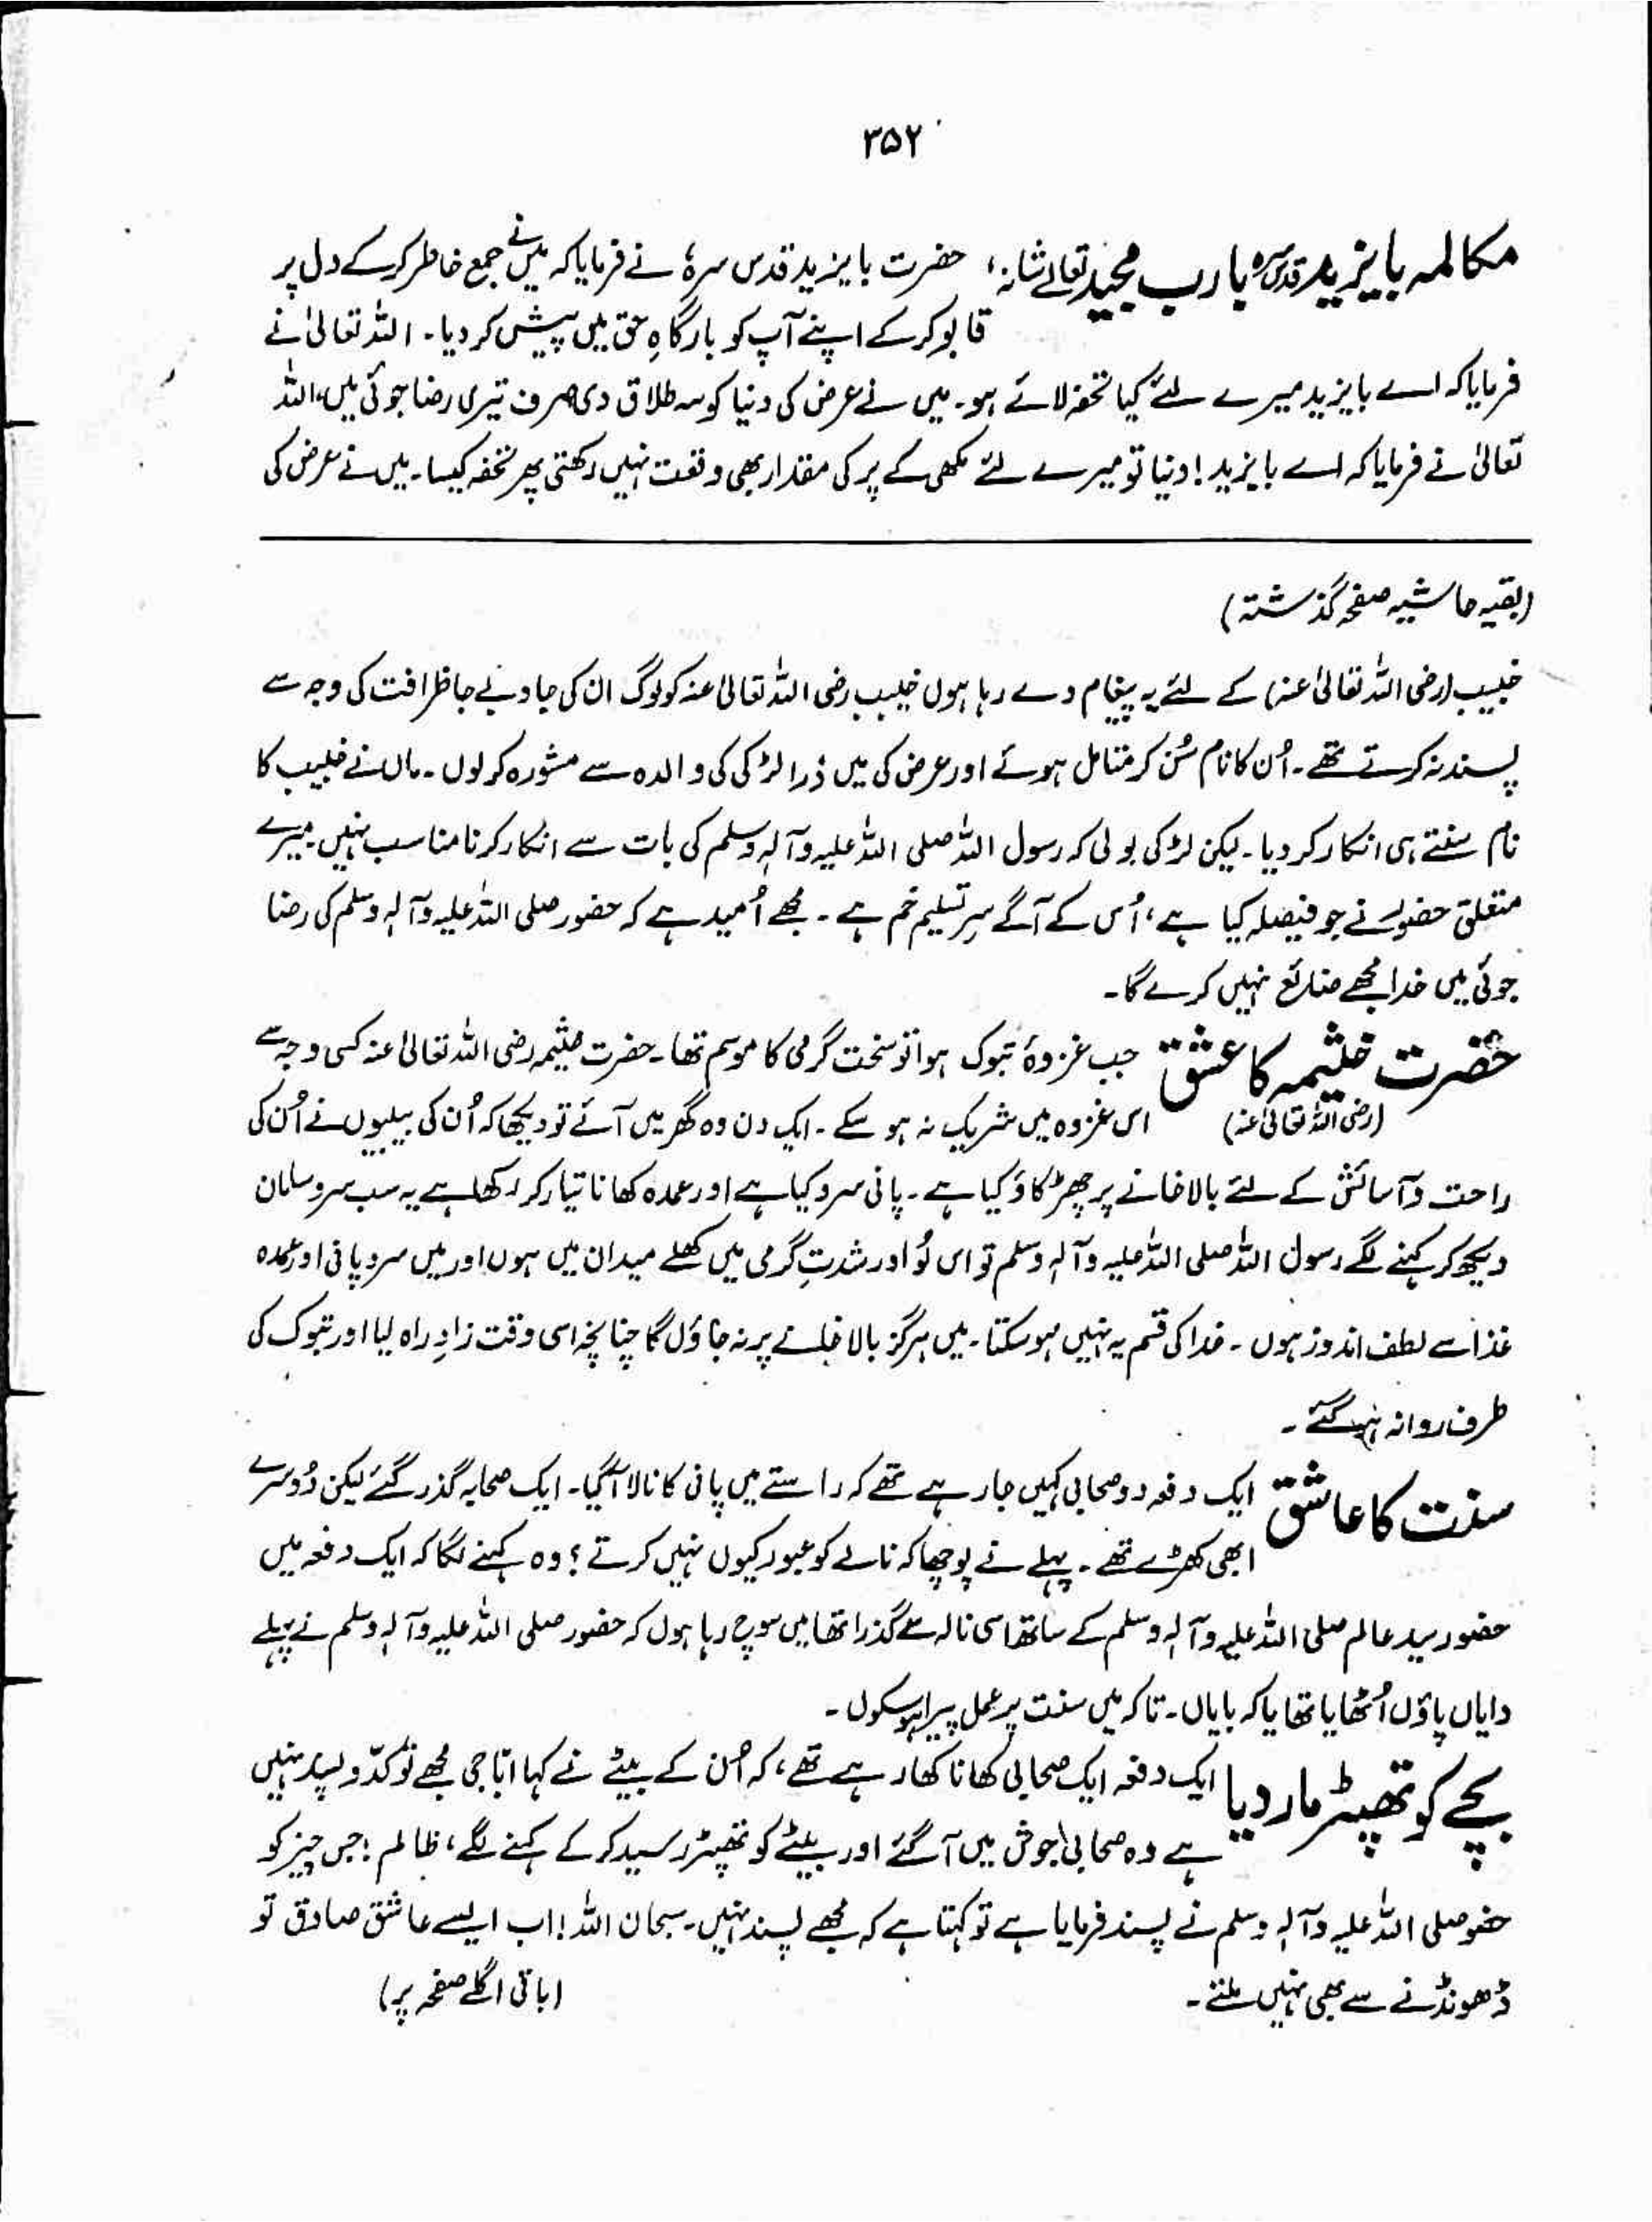 ۳۵۲
مکالمہ بایزید قدس سرہ بارب مجید تعالےٰ شانہ، حضرت بایزید قدس سرہٗ نے فرمایا کہ میں نے جمع خاطر کر کے دل پر
قابو کر کے اپنے آپ کو بارگاہِ حق میں پیش کر دیا۔ اللہ تعالیٰ نے
فرمایا کہ اے بایزید میرے لئے کیا تحفہ لائے ہو۔ میں نے عرض کی دنیا کو سہ طلاق دی صرف تیری رضا جوئی میں، اللہ
تعالیٰ نے فرمایا کہ اے بایزید! دنیا تو میرے لئے مکھی کے پر کی مقدار بھی وقعت نہیں رکھتی پھر تحفہ کیسا۔ میں نے عرض کی
(بقیہ حاشیہ صفحہ گذشتہ)
خبیب (رضی اللہ تعالیٰ عنہ) کے لئے یہ پیغام دے رہا ہوں خبیب رضی اللہ تعالیٰ عنہ کو لوگ ان کی جا و بے جا ظرافت کی وجہ سے
پسند نہ کرتے تھے۔ اُن کا نام سُن کر متامل ہوئے اور عرض کی میں ذرا لڑکی کی والدہ سے مشورہ کر لوں۔ ماں نے خبیب کا
نام سنتے ہی انکار کر دیا۔ لیکن لڑکی بولی کہ رسول اللہ صلی اللہ علیہ وآلہٖ وسلم کی بات سے انکار کرنا مناسب نہیں میرے
متعلق حضور نے جو فیصلہ کیا ہے، اُس کے آگے سرِ تسلیم خم ہے۔ مجھے اُمید ہے کہ حضور صلی اللہ علیہ وآلہٖ وسلم کی رضا
جوئی میں خدا مجھے ضائع نہیں کرے گا۔
حضرت خثیمہ کا عشق جب غزوۂ تبوک ہوا تو سخت گرمی کا موسم تھا۔ حضرت خثیمہ رضی اللہ تعالیٰ عنہ کسی وجہ سے
(رضی اللہ تعالیٰ عنہ) اس غزوہ میں شریک نہ ہو سکے۔ ایک دن وہ گھر میں آئے تو دیکھا کہ اُن کی بیبیوں نے اُن کی
راحت و آسائش کے لئے بالا خانے پر چھڑکاؤ کیا ہے۔ پانی سرد کیا ہے اور عمدہ کھانا تیار کر رکھا ہے یہ سب سروسامان
دیکھ کر کہنے لگے رسول اللہ صلی اللہ علیہ وآلہٖ وسلم تو اس لُو اور شدتِ گرمی میں کھلے میدان میں ہوں اور میں سرد پانی اور عمدہ
غذا سے لطف اندوز ہوں۔ خدا کی قسم یہ نہیں ہو سکتا۔ میں ہرگز بالا خانے پر نہ جاؤں گا چنانچہ اسی وقت زادِ راہ لیا اور تبوک کی
طرف روانہ ہو گئے۔
سنت کا عاشق ایک دفعہ دو صحابی کہیں جا رہے تھے کہ راستے میں پانی کا نالا آ گیا۔ ایک صحابہ گذر گئے لیکن دُوسرے
ابھی کھڑے تھے۔ پہلے نے پوچھا کہ نالے کو عبور کیوں نہیں کرتے؟ وہ کہنے لگا کہ ایک دفعہ میں
حضور سید عالم صلی اللہ علیہ وآلہٖ وسلم کے ساتھ اسی نالہ سے گذرا تھا میں سوچ رہا ہوں کہ حضور صلی اللہ علیہ وآلہٖ وسلم نے پہلے
دایاں پاؤں اُٹھایا تھا یا کہ بایاں۔ تاکہ میں سنت پر عمل پیرا ہو سکوں۔
بچے کو تھپڑ مار دیا ایک دفعہ ایک صحابی کھانا کھا رہے تھے، کہ اُن کے بیٹے نے کہا ابّا جی مجھے تو کدّو پسند نہیں
ہے وہ صحابی جوش میں آ گئے اور بیٹے کو تھپڑ رسید کر کے کہنے لگے، ظالم! جس چیز کو
حضو صلی اللہ علیہ وآلہٖ وسلم نے پسند فرمایا ہے تو کہتا ہے کہ مجھے پسند نہیں۔ سبحان اللہ! اب ایسے عاشق صادق تو
ڈھونڈنے سے بھی نہیں ملتے۔ (باقی اگلے صفحہ پر)